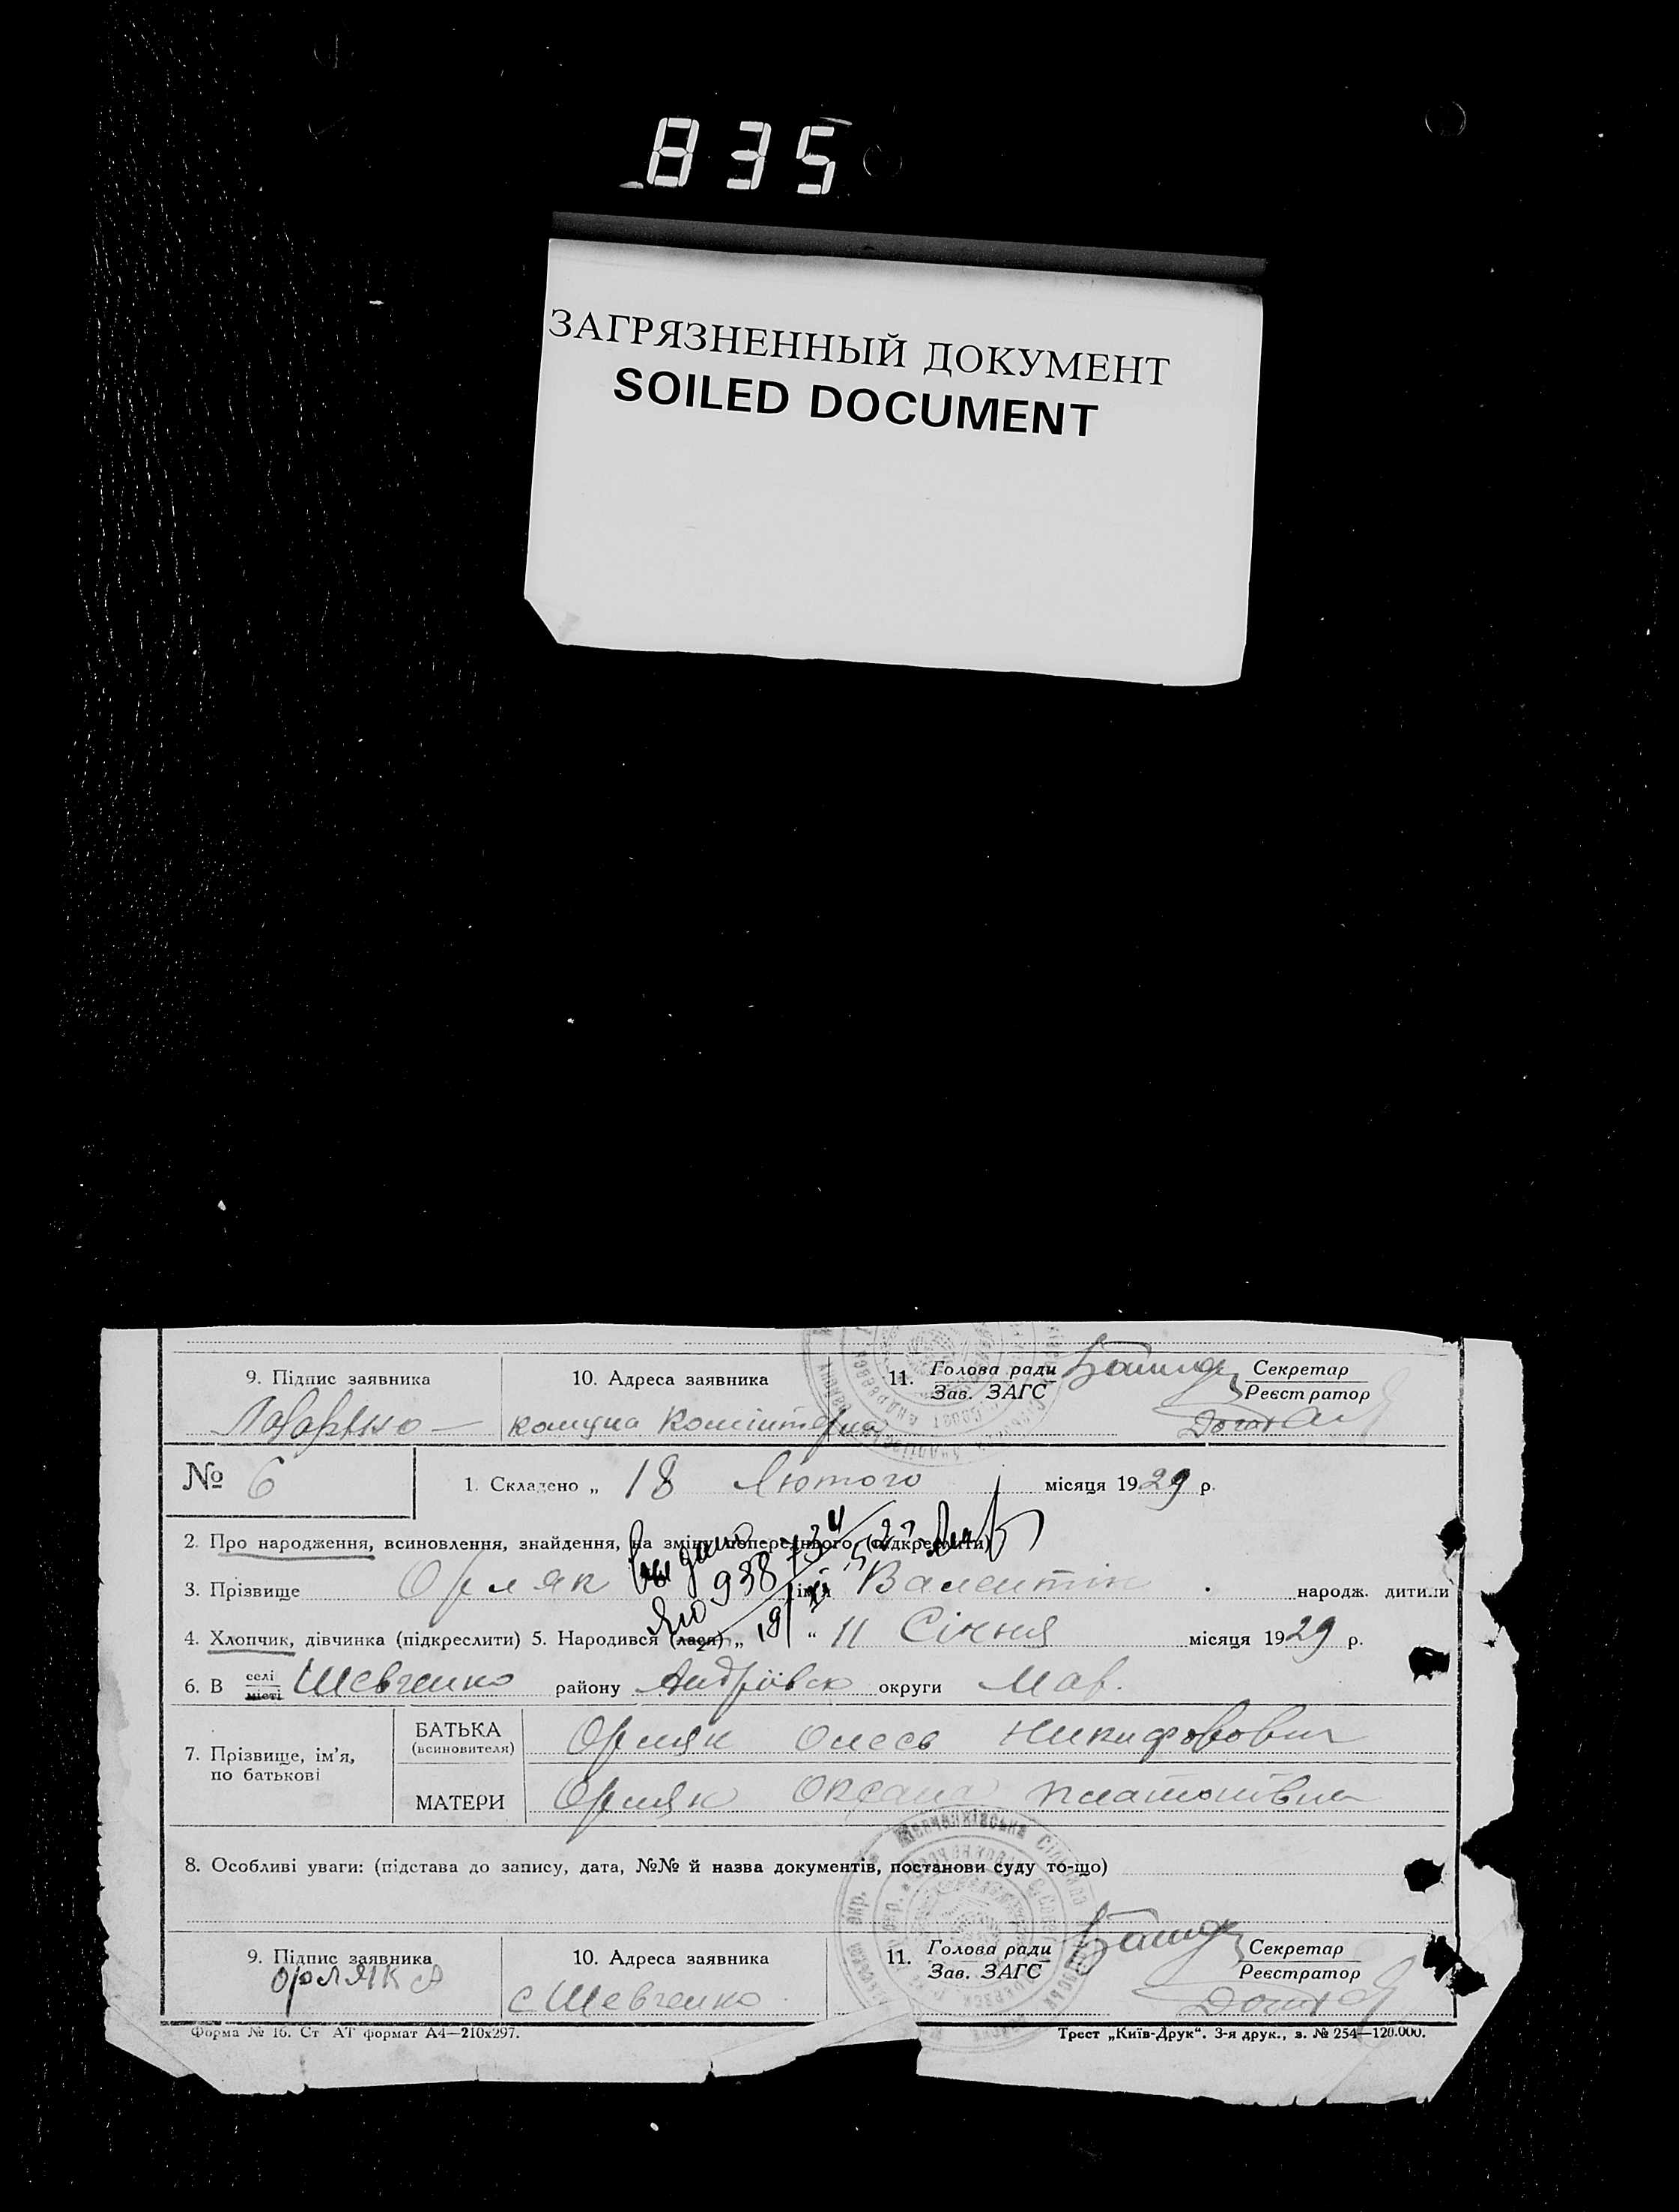 835
ЗАГРЯЗНЕННЫЙ ДОКУМЕНТ
SOILED DOCUMENT
9. Підпис заявника
10. Адреса заявника
11. Голова ради
Зав. ЗАГС
Секретар
Реєстратор
комуна Комінтерна
№ 6
1. Складено „ 18 Лютого місяця 1929 р.
2. Про народження, всиновлення, знайдення, на зміну попереднього (підкреслити)
3. Прізвище Орляк ім'я Валентин народж. дитини
4. Хлопчик, дівчинка (підкреслити) 5. Народився (лася) „ “ 11 Січня місяця 1929 р.
6. В селі місті Шевченко району Андріївсь округи Мар.
7. Прізвище, ім'я, по батькові
БАТЬКА (всиновителя) Орляк Олесь Никифорович
МАТЕРИ Орляк Оксана Платонівна
8. Особливі уваги: (підстава до запису, дата, №№ й назва документів, постанови суду то-що)
9. Підпис заявника
орляк
10. Адреса заявника
с Шевченко
11. Голова ради
Зав. ЗАГС
Секретар
Реєстратор
Форма № 16. Ст АТ формат А4—210х297.
Трест „Київ-Друк“. 3-я друк., з. № 254—120.000.